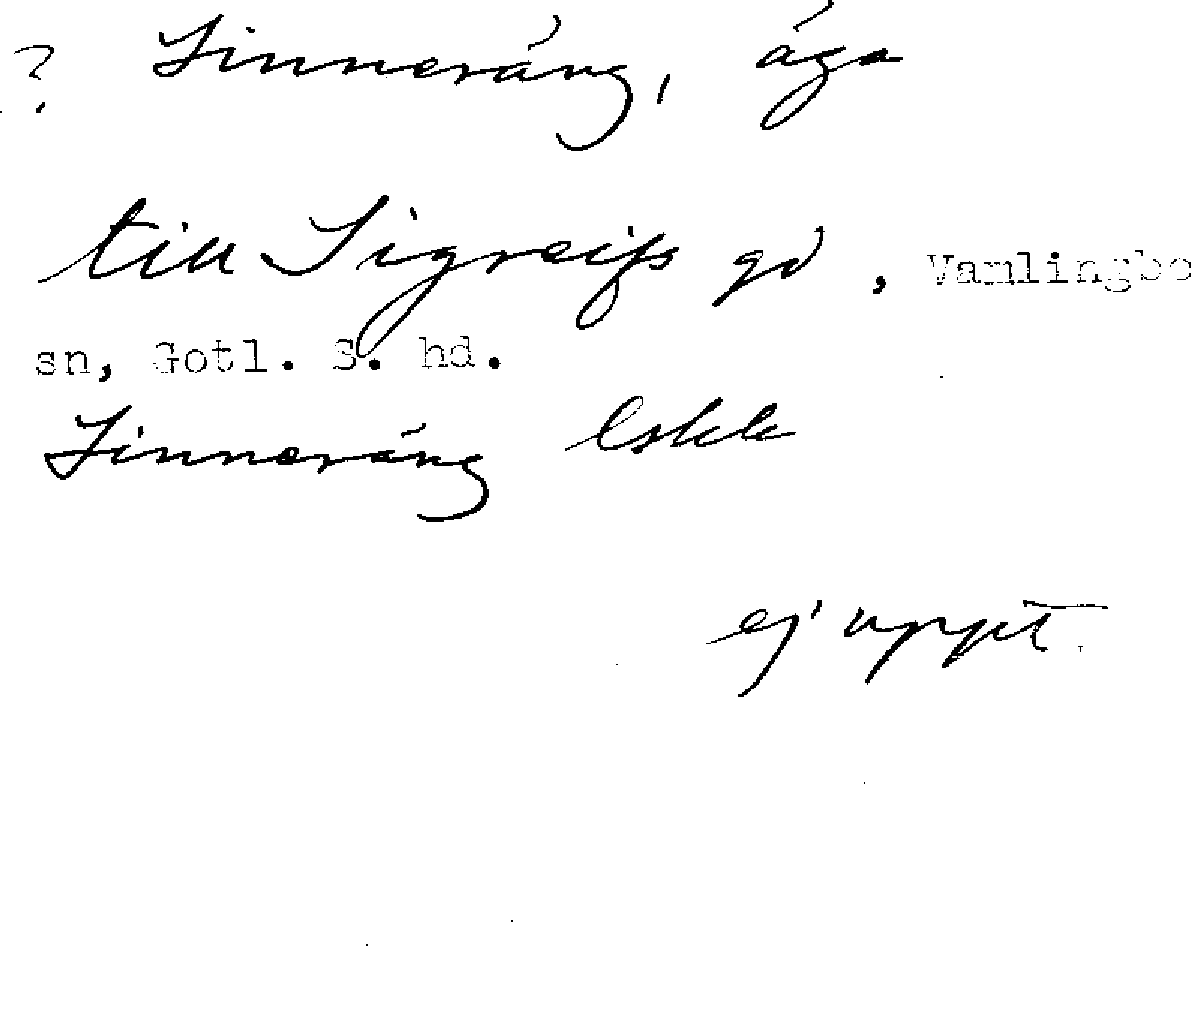 ? Sinneräng, äga
till Sigreifs gd, Vamlingbo
sn, Gotl. S. hd.
Sinneräng lskk
ej uppt.